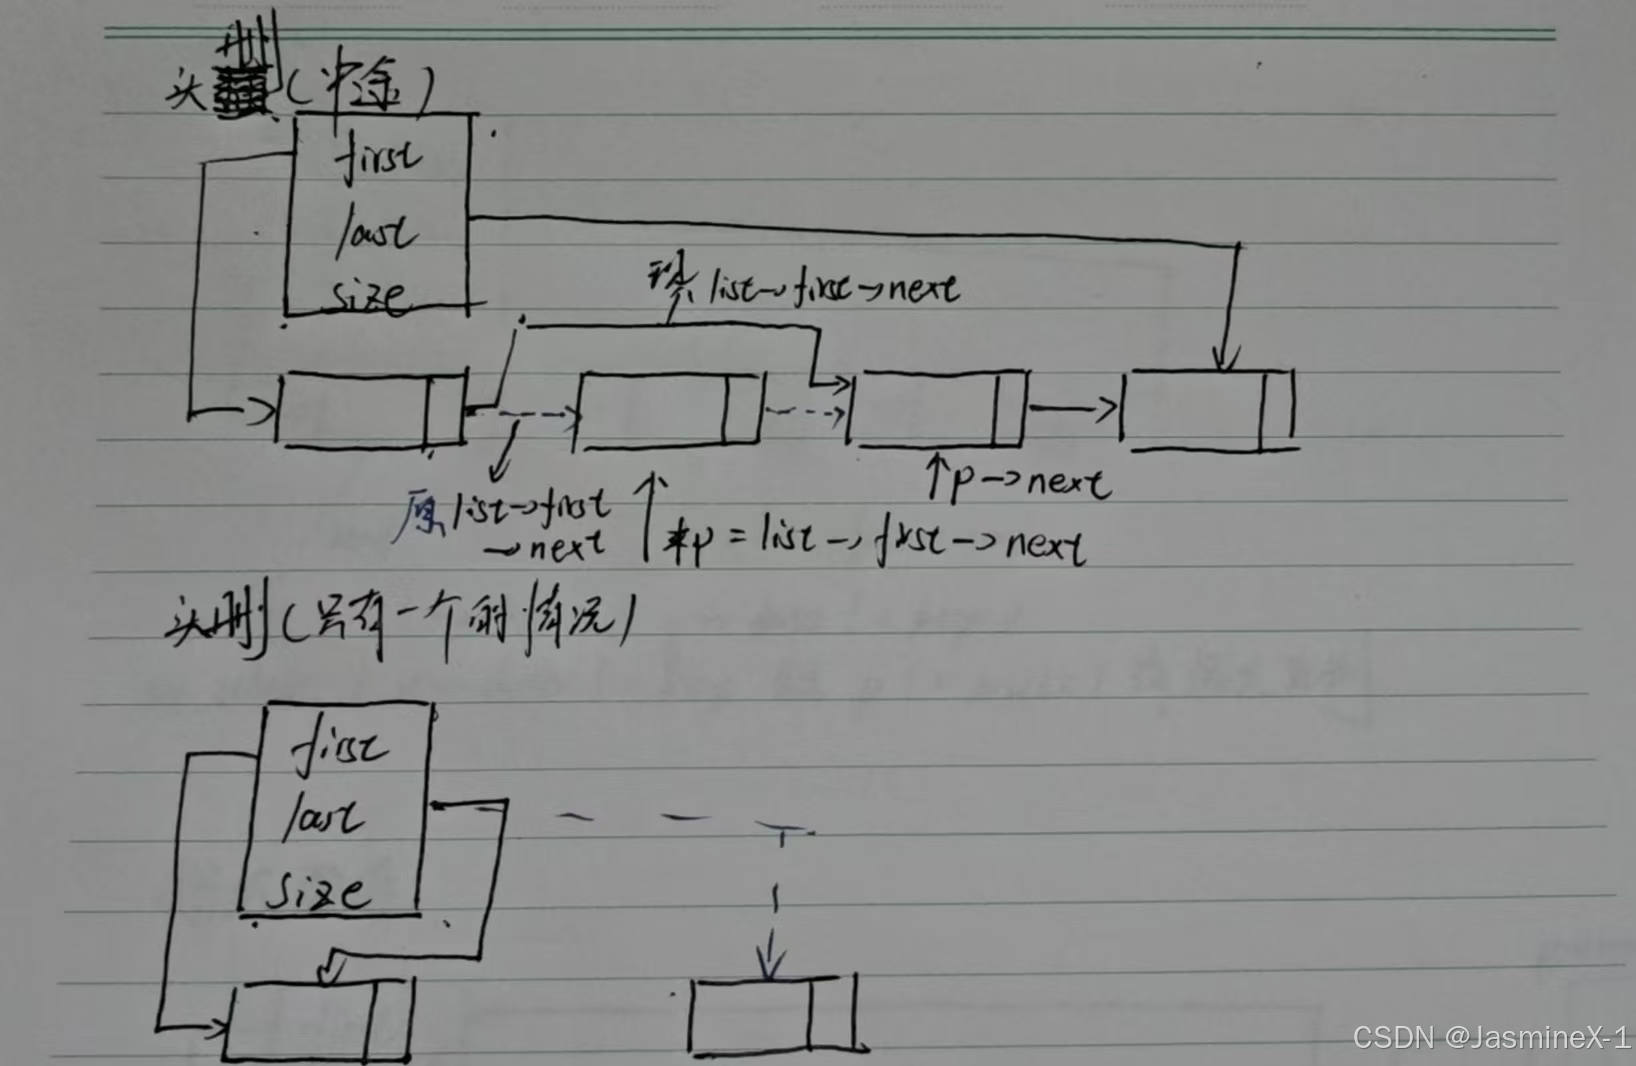 头删(中途)
first
last
size
现 list→first→next
p→next
原 list→first
→next
*p = list→first→next
头删(只有一个的情况)
first
last
size
CSDN @JasmineX-1